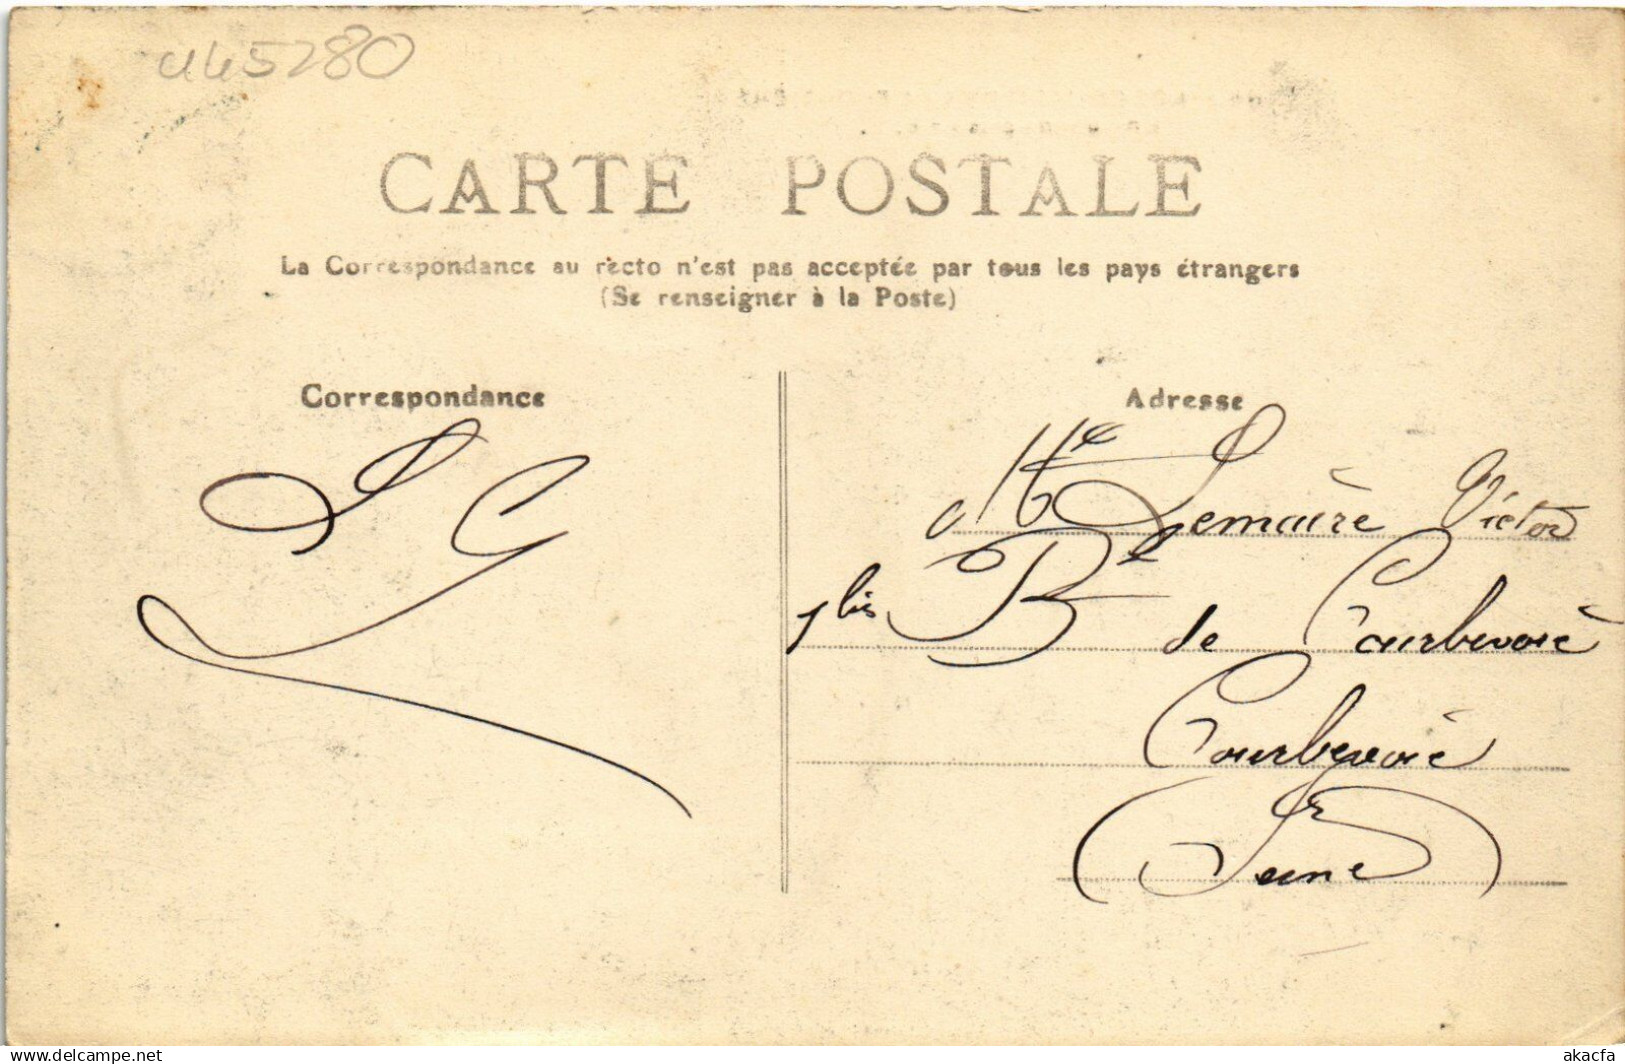 445280
CARTE POSTALE
La Correspondance au recto n'est pas acceptée par tous les pays étrangers
(Se renseigner à la Poste)
Correspondance
Adresse
Lemaire Victor
1 bis Bd de Courbevoie
Courbevoie
(Seine)
www.delcampe.net
akacfa